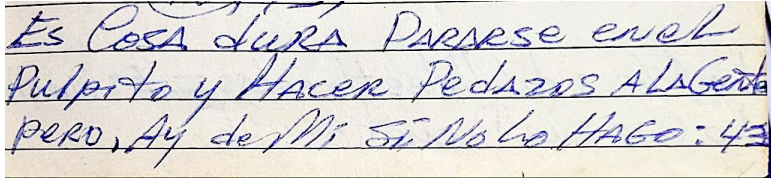 Es Cosa dura Pararse en el
Pulpito y Hacer Pedazos A LA Gente
pero, Ay de Mi Si No Lo HAGO: 43